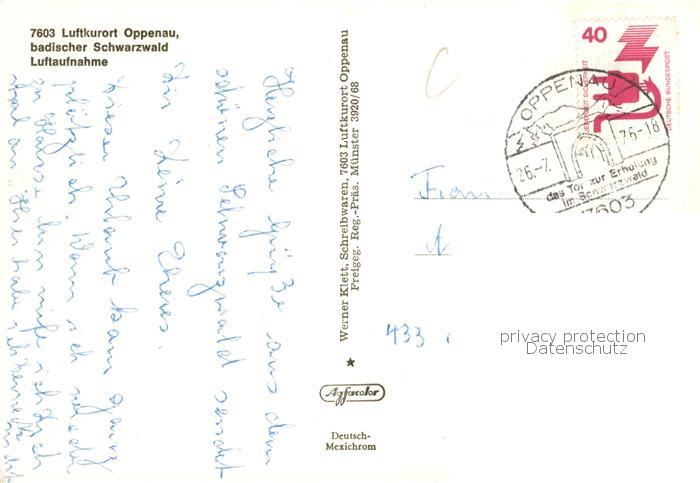 7603 Luftkurort Oppenau,
badischer Schwarzwald
Luftaufnahme
Herzliche Grüße aus dem
schönen Schwarzwald sendet
Dir Deine Theres.
Dieser Urlaub kam ganz
plötzlich. Wenn ich wieder
zu Hause bin rufe ich Dich
mal an. Hier habe ich
Werner Klett, Schreibwaren, 7603 Luftkurort Oppenau
Freigeg. Reg.-Präs. Münster 3920/68
Agfacolor
Deutsch-
Mexichrom
40
JEDERZEIT SICHERHEIT
DEUTSCHE BUNDESPOST
OPPENAU
26.-7. 76-18
das Tor zur Erholung
im Schwarzwald
7603
C
Frau
A
433
privacy protection
Datenschutz